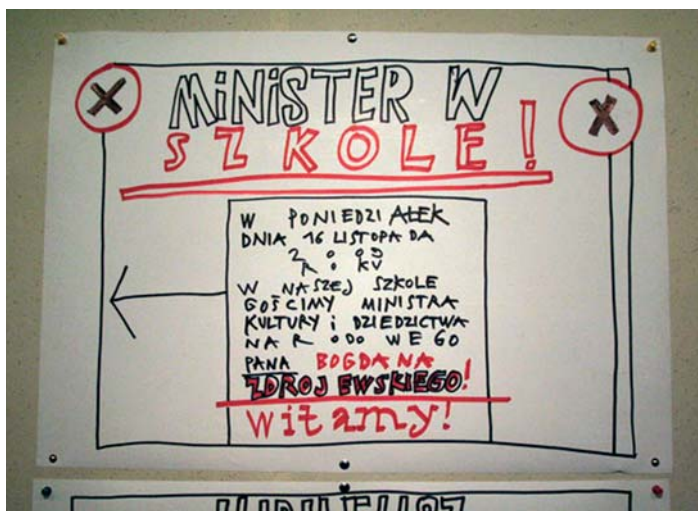 MiNiSTER W
SZKOLE!
W PONIEDZIAŁEK
DNIA 16 LISTOPADA
2009
ROKU
W NASZEJ SZKOLE
GOŚCIMY MINISTRA
KULTURY i DZIEDZICTWA
NARODOWEGO
PANA BOGDANA
ZDROJEWSKIEGO!
Witamy!